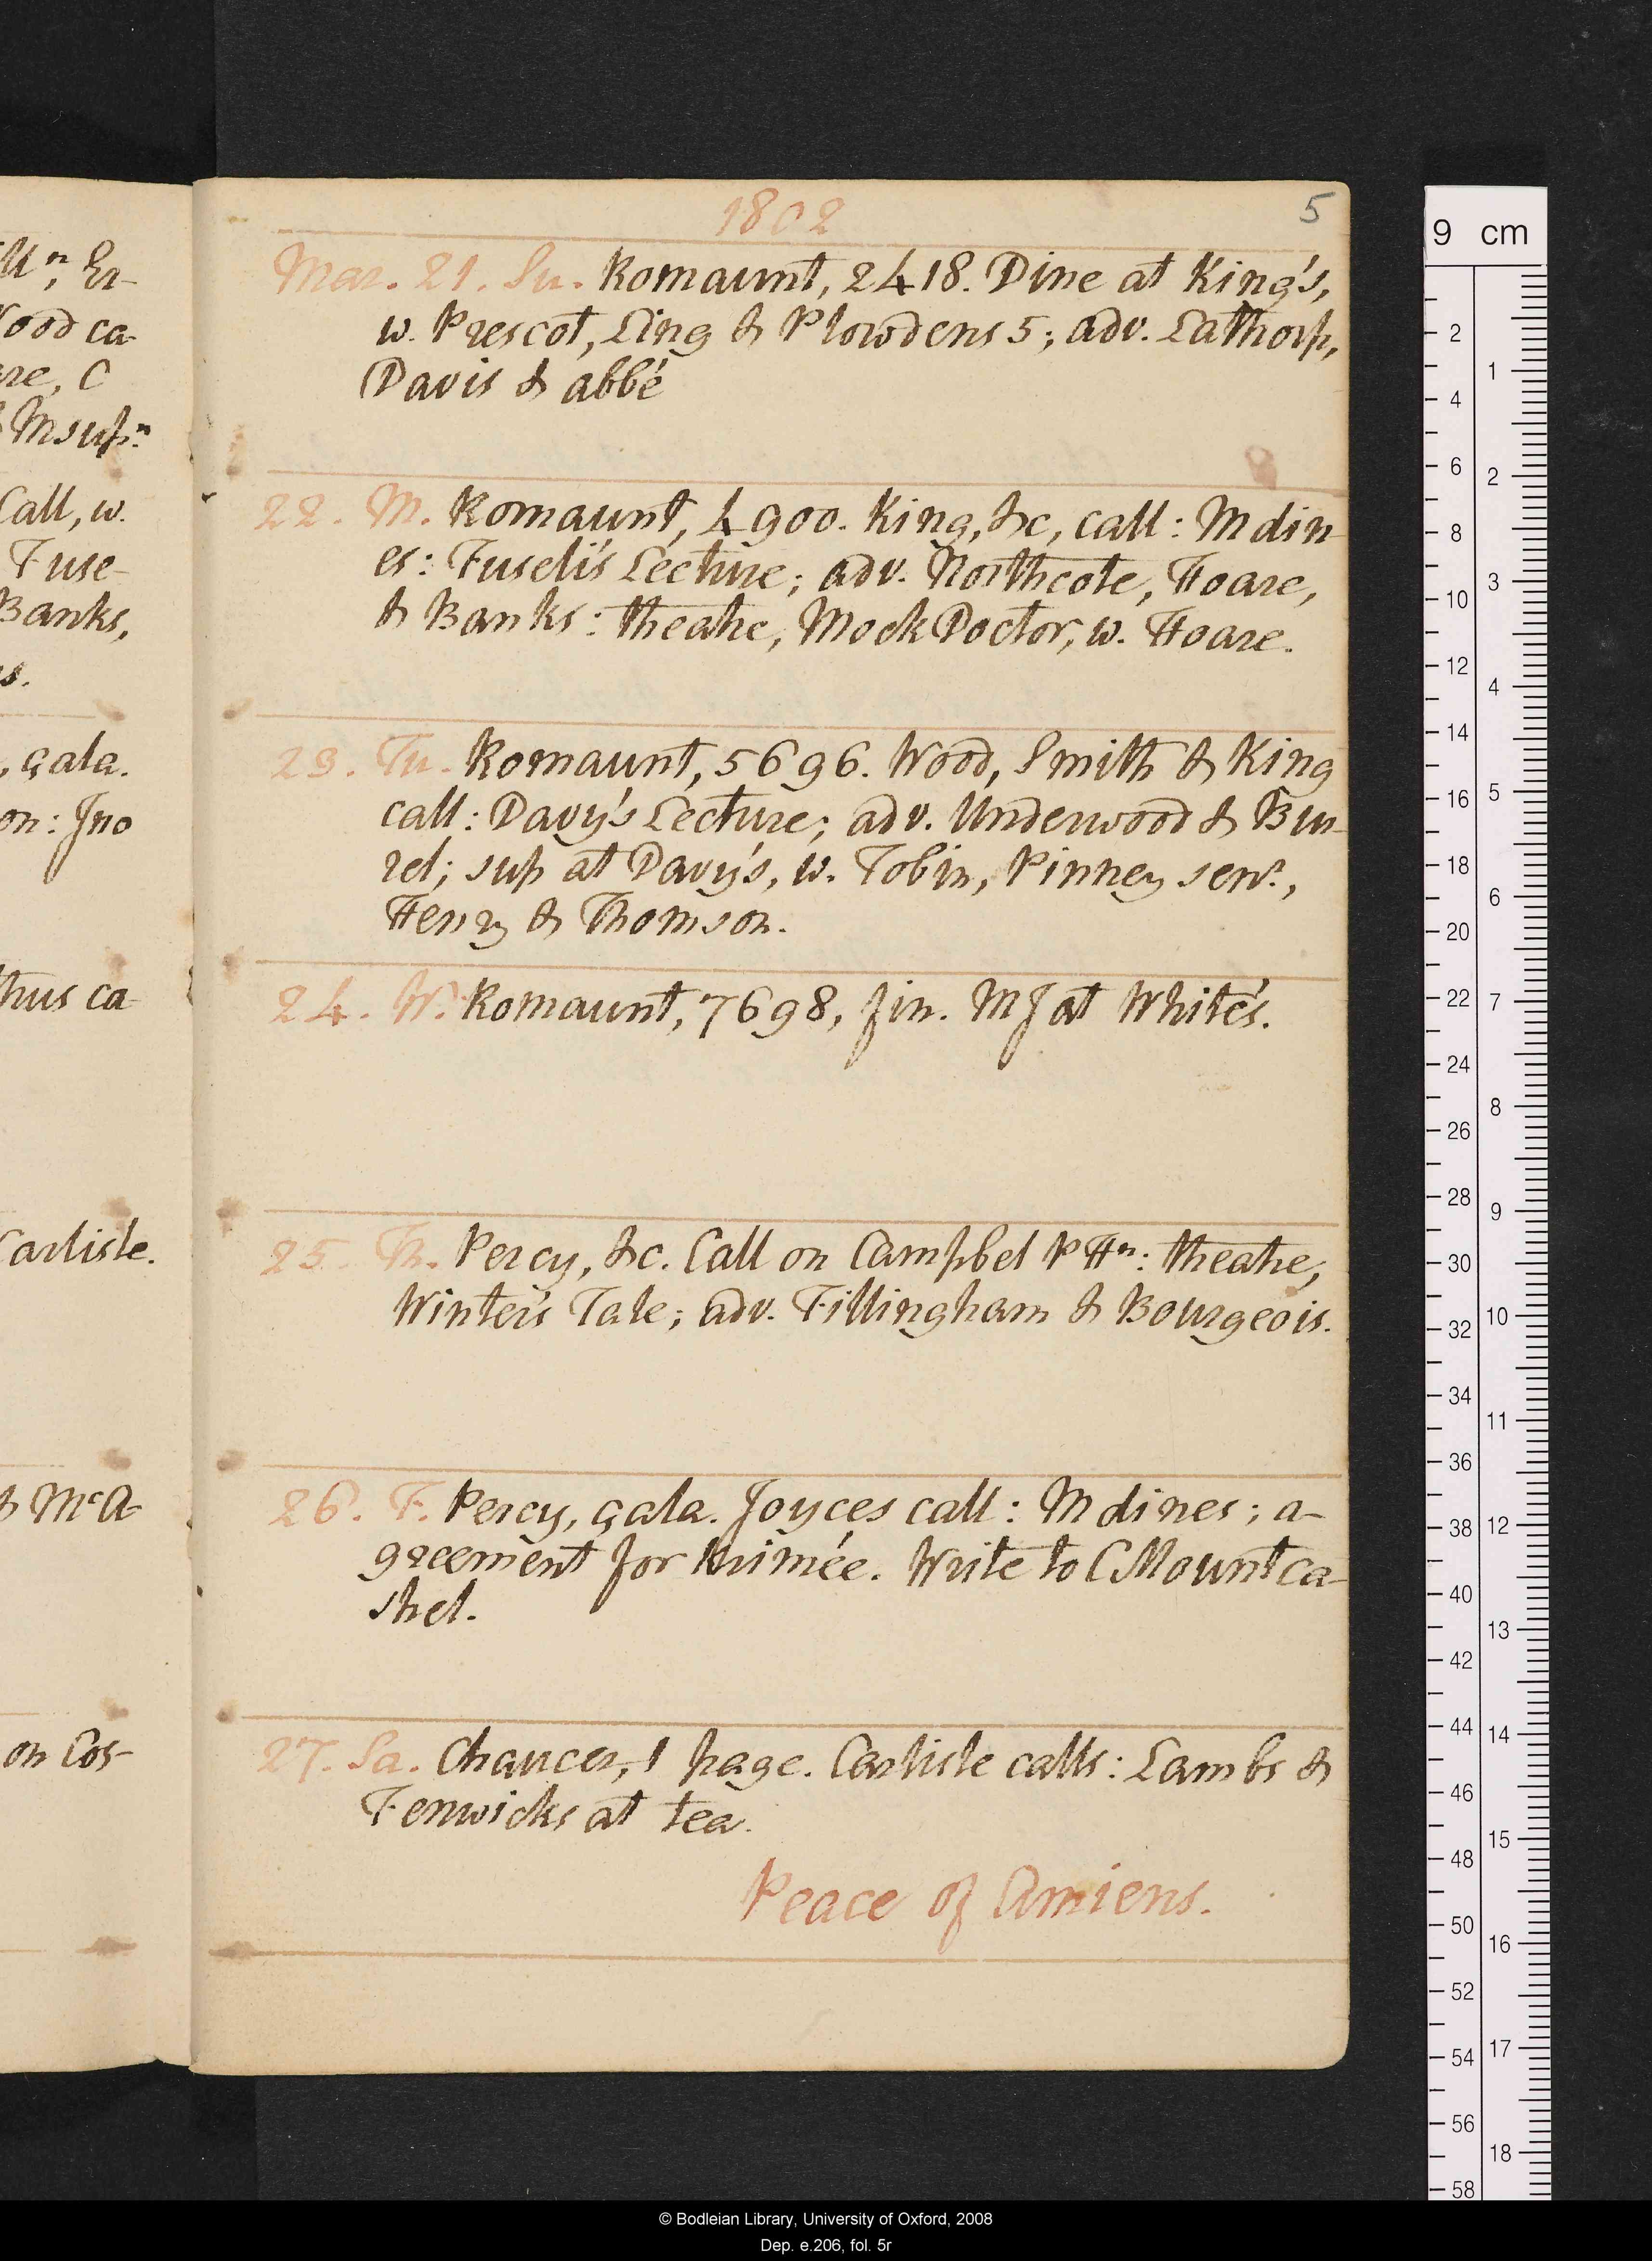 Mn; Er-
Wood ca-
are, C
Msupn
Call, w.
Fuse-
Banks,
s.
, gala.
on: Jno
thus ca-
Carlisle.
& McA-
on Cos-
1802
5
Mar. 21. Su. Romaunt, 2418. Dine at King's,
w. Prescot, Ling & Plowdens 5; adv. Lathorp,
Davis & abbé
22. M. Romaunt, 4900. King, &c, call: M din-
es: Fuseli's Lecture; adv. Northcote, Hoare,
& Banks: theatre, Mock Doctor, w. Hoare.
23. Tu. Romaunt, 5696. Wood, Smith & King
call: Davy's Lecture; adv. Underwood & Bur-
rel; sup at Davy's, w. Tobin, Pinney senr.,
Henry & Thomson.
24. W. Romaunt, 7698, fin. MJ at White's.
25. Th. Percy, &c. Call on Campbel PHn: theatre,
Winter's Tale; adv. Fillingham & Bourgeois.
26. F. Percy, gala. Joyces call: M dines; a-
greement for Krimée. Write to C Mountca-
shel.
27. Sa. Chaucer, 1 page. Carlisle calls: Lambs &
Fenwicks at tea.
Peace of Amiens.
9 cm
2
4
6
8
10
12
14
16
18
20
22
24
26
28
30
32
34
36
38
40
42
44
46
48
50
52
54
56
58
1
2
3
4
5
6
7
8
9
10
11
12
13
14
15
16
17
18
© Bodleian Library, University of Oxford, 2008
Dep. e.206, fol. 5r